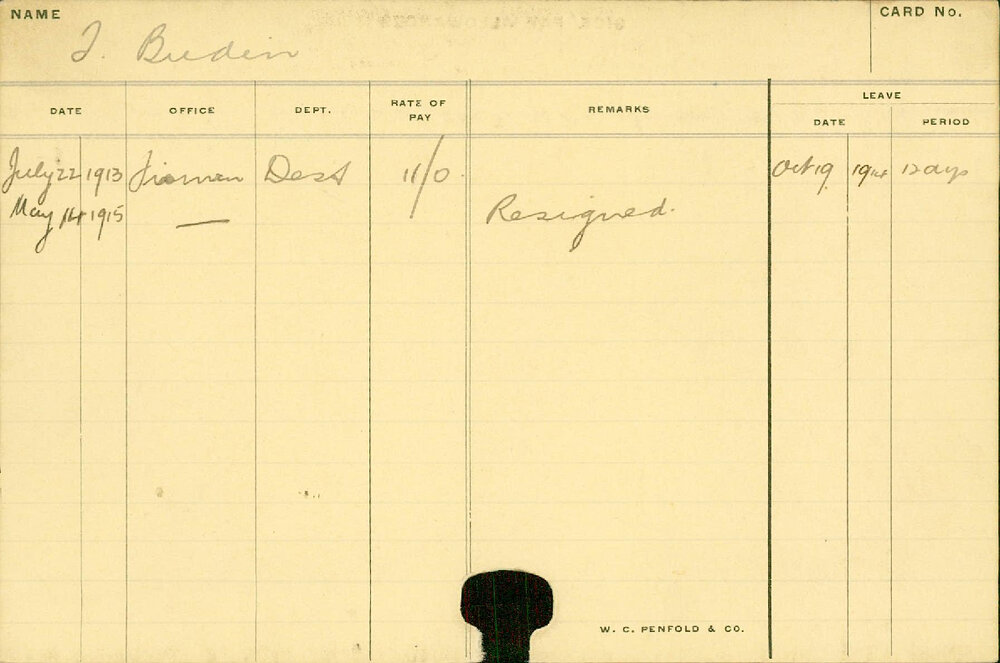 NAME
CARD No.
J. Breden
DATE OFFICE DEPT. RATE OF PAY REMARKS LEAVE
DATE PERIOD
July 22 1913 Fireman Dest 11/0 Oct 19 1914 12 days
May 14 1915 — Resigned.
W. C. PENFOLD & CO.